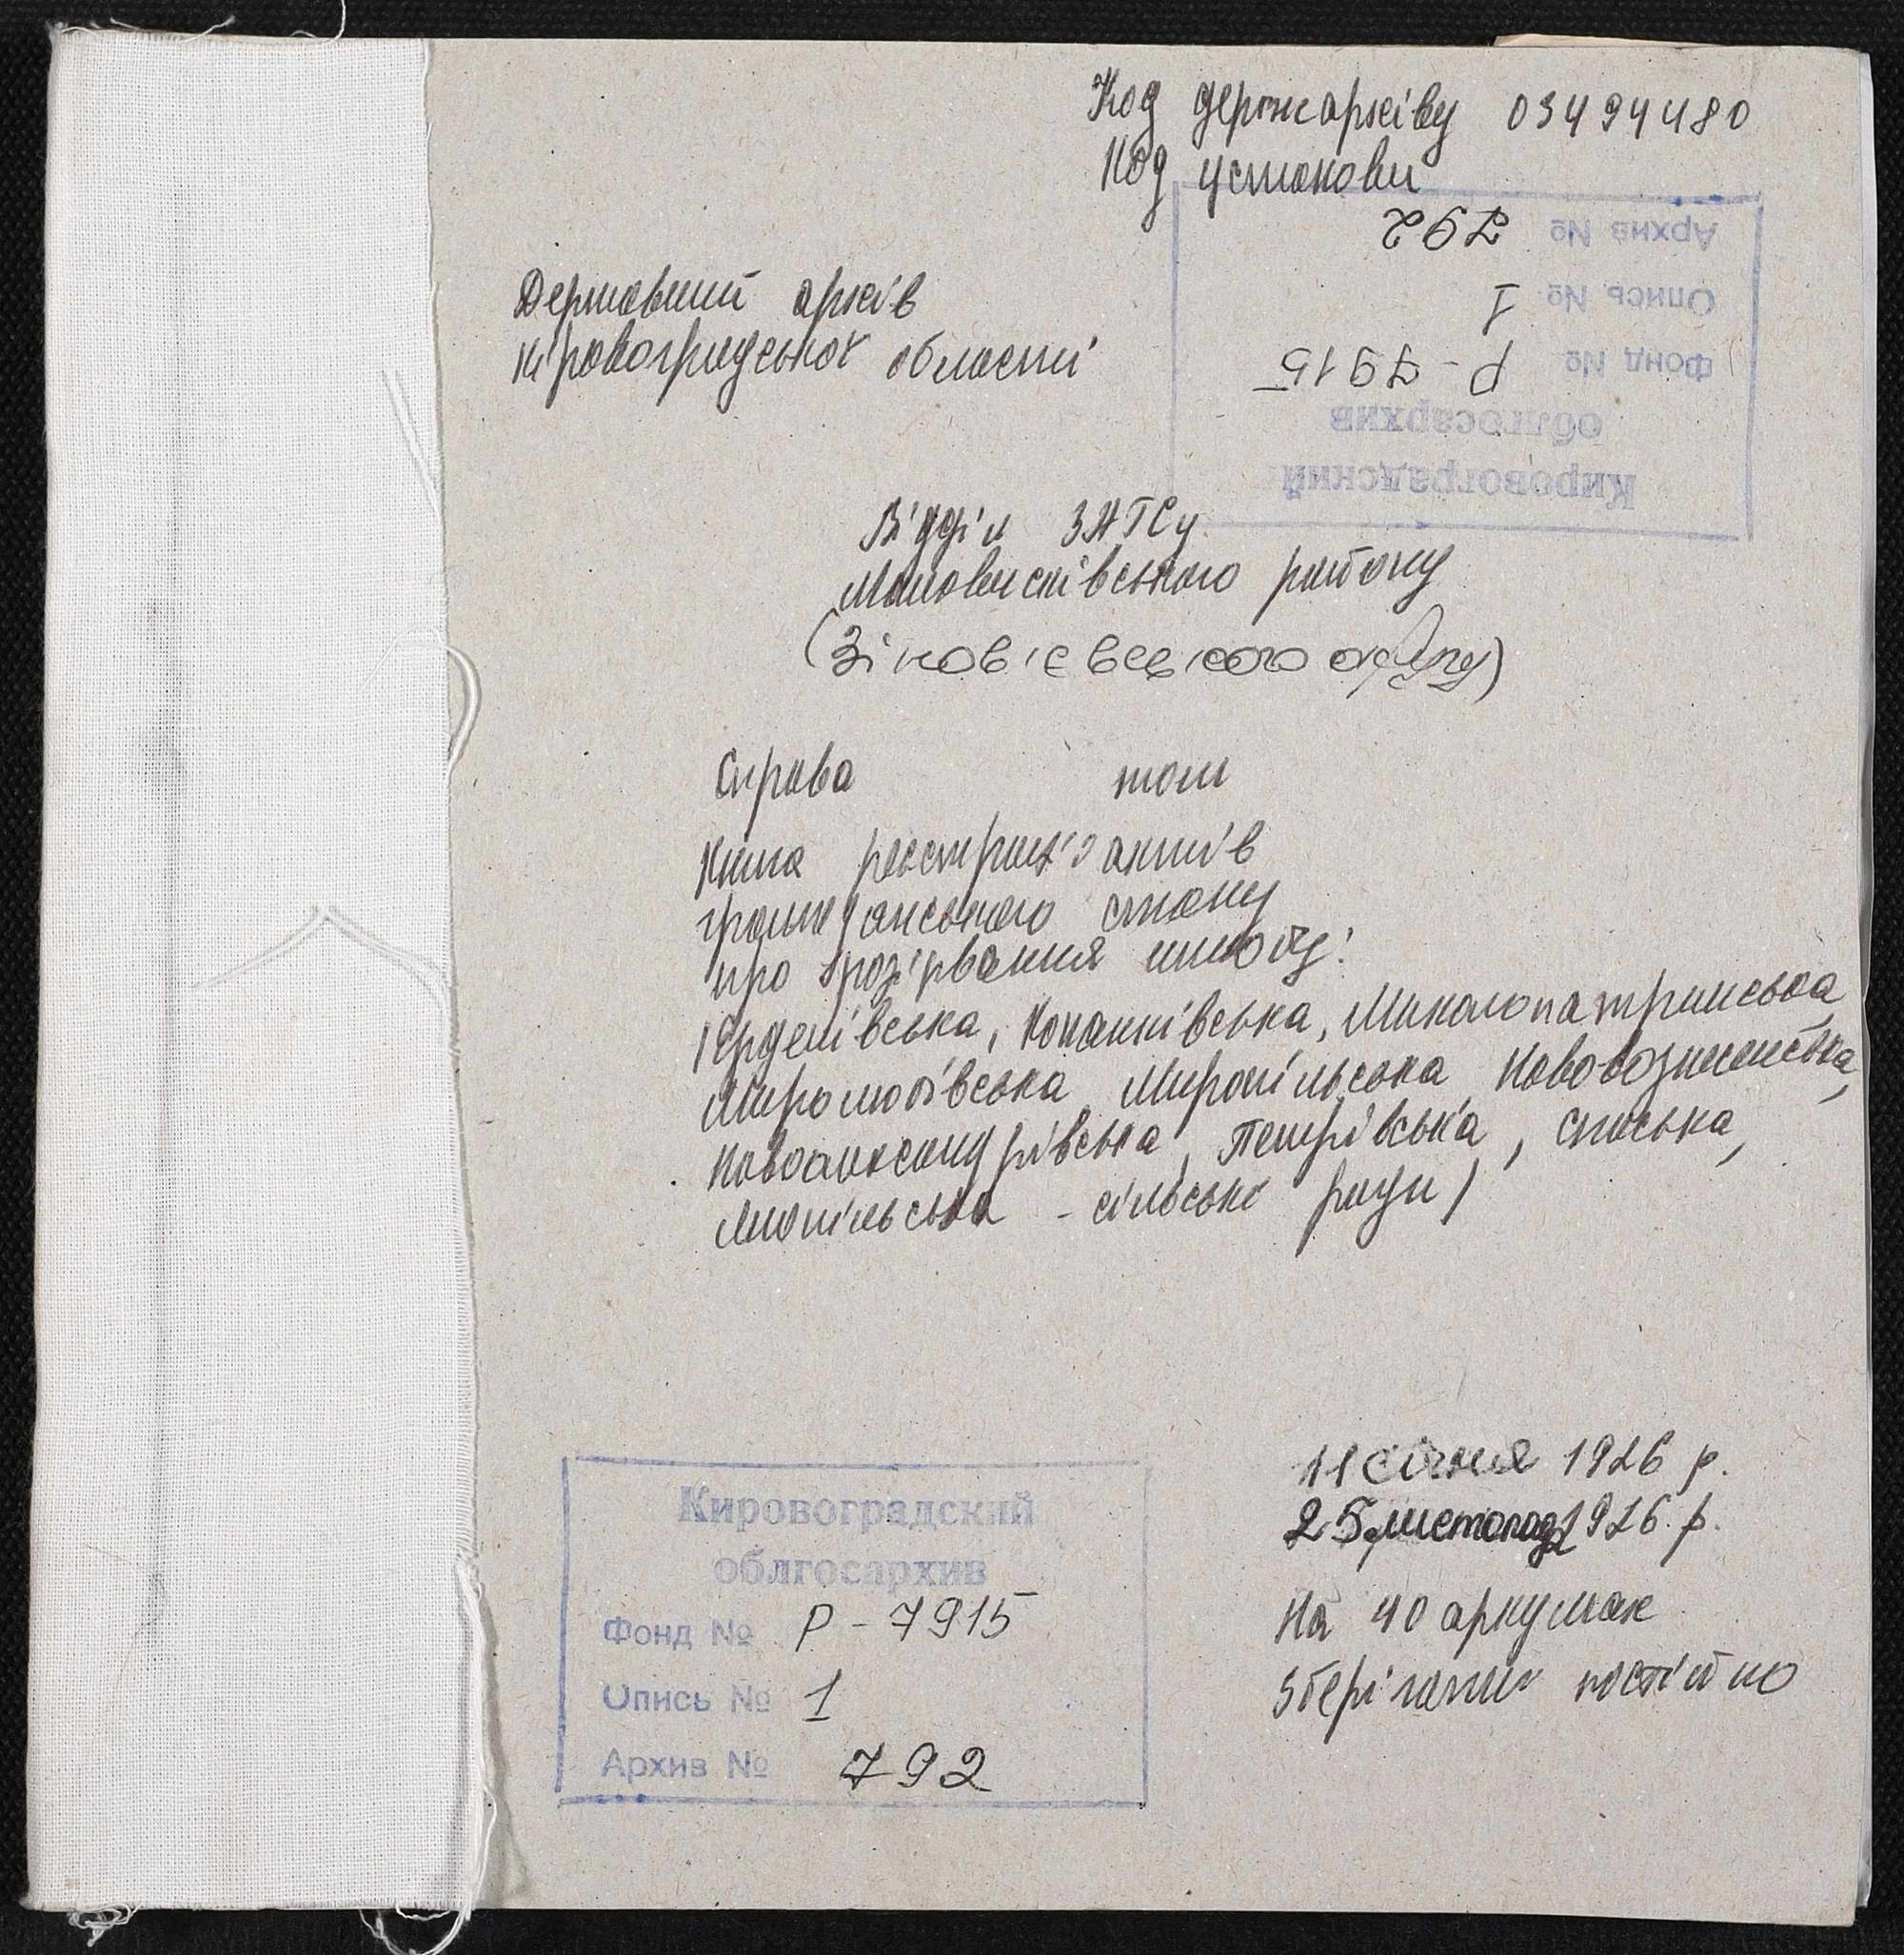 Код держархіву 03494480
Код установи
Архив № 792
Опись № 1
Фонд № Р-7915
облгосархив
Кировоградский
Державний архів
Кіровоградської області
Відділ ЗАГСу
Маловисківського району
(Зінов'євського округу)
Справа том
Книга реєстрації актів
громадянського стану
про розірвання шлюбу:
(Ерделівська, Копанківська, Миколопатринська,
Миролюбівська, Миропільська, Нововознесенська,
Новоолександрівська, Петрівська, Спаська,
Липільська - сільські ради)
11 січня 1926 р.
25 листопад 1926 р.
На 40 аркушах
Зберігати постійно
Кировоградский
облгосархив
Фонд № Р-7915
Опись № 1
Архив № 792